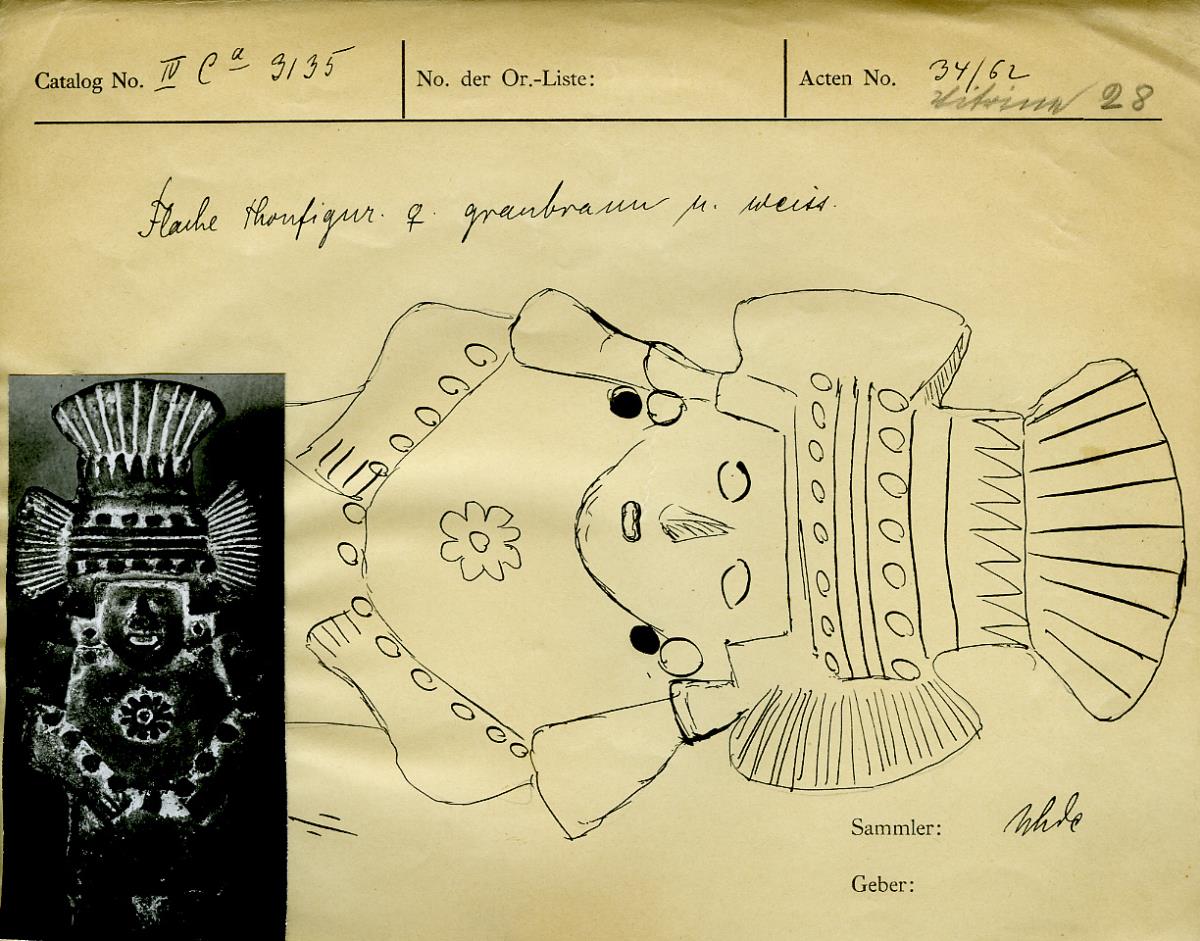 Catalog No. IV Ca 3135 No. der Or.-Liste: Acten No. 34/62
Vitrine 28
Flache Thonfigur. ♀. graubraun u. weiss.
Sammler: Uhde
Geber: